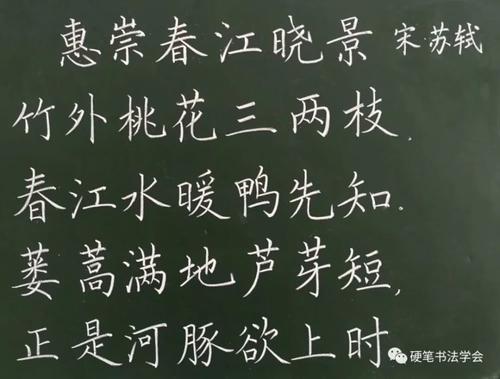 惠崇春江晓景 宋·苏轼
竹外桃花三两枝.
春江水暖鸭先知.
蒌蒿满地芦芽短,
正是河豚欲上时
硬笔书法学会